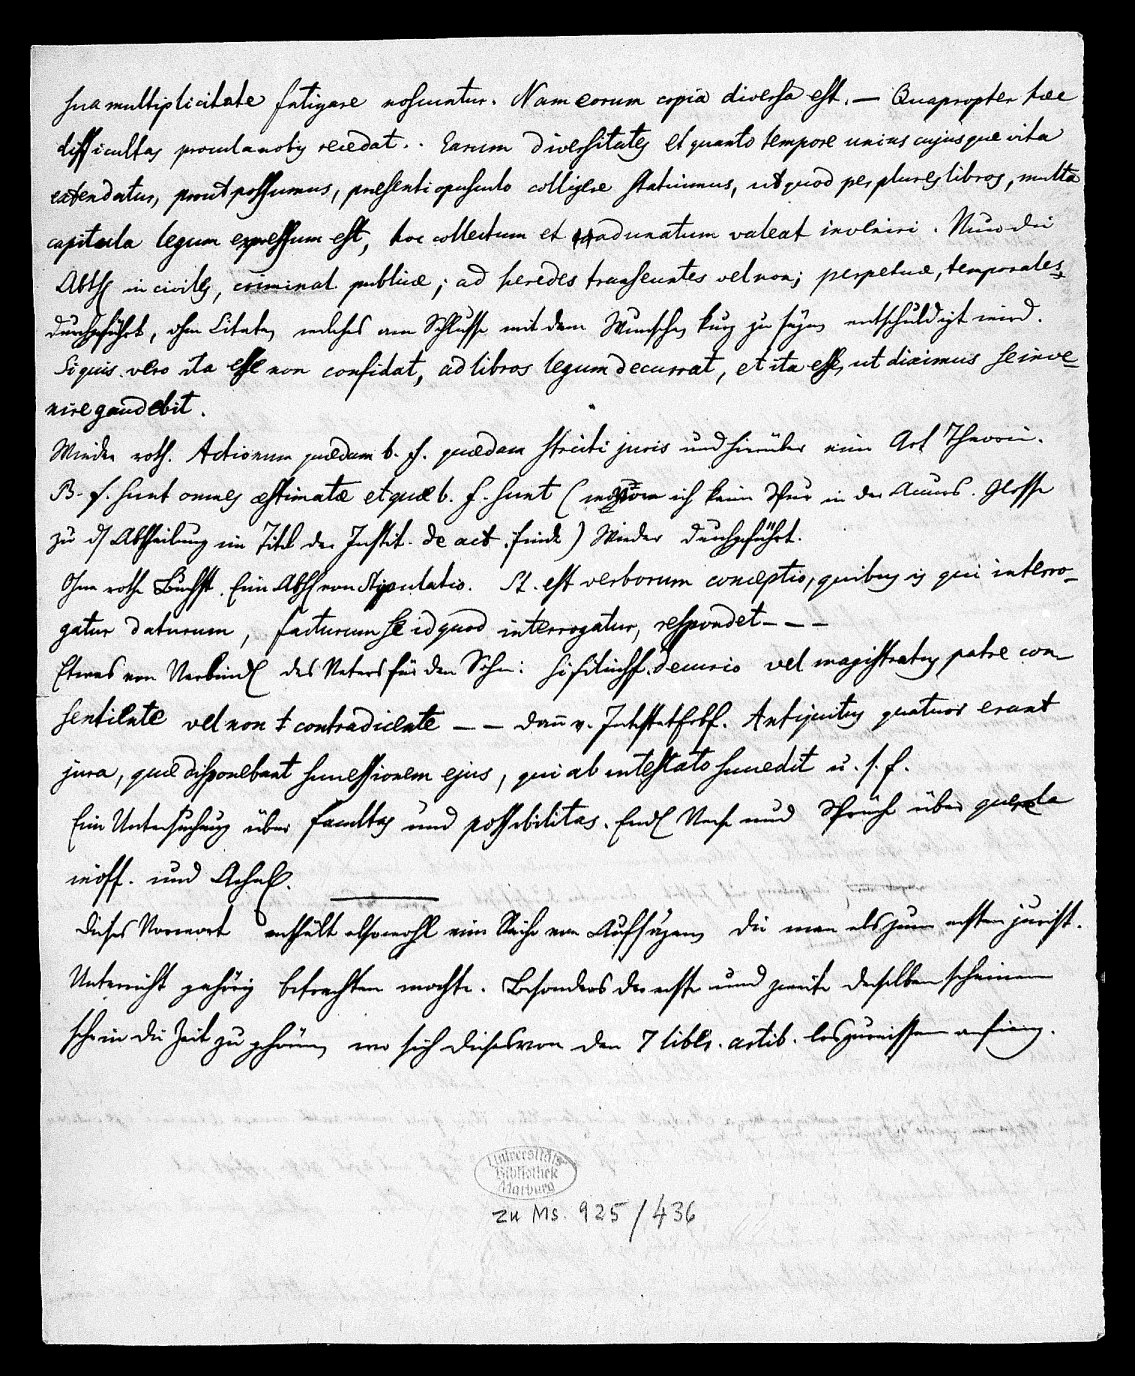 sua multiplicitate fatigare noscuntur. Nam eorum copia diversa est. — Quapropter hæc
difficultas procul a nobis recedat. . Earum diversitates et quanto tempore unius cujusque vita
extendatur, prout possumus, presenti opusculo colligere statuimus, ut quod per plures libros, multa
capitula legum expressum est, hoc collectum et adunatum valeat inveniri. Nun die
Abth in civiles, criminal. publicæ; ad heredes transeuntes vel non; perpetuæ, temporales
durchgeführt, ohne Citate, welches am Schlusse mit dem Wunsche, kurz zu seyn entschuldigt wird.
Si quis vero ita esse non confidat, ad libros legum decurrat, et ita esse, ut diximus se inve-
nire gaudebit.
Wieder roth. Actionum quædam b. f. quædam stricti juris und hierüber eine Art Theorie.
B. f. sunt omnes æstimatæ et quæ b. f. sunt (wovon ich keine Spur in der Accurs. Glosse
zu d/ Abtheilung im Titel der Instit. de act. finde) Wieder durchgeführt.
Ohne rothe Buchst. Eine Abh von Stipulatio. St. est verborum conceptio, quibus is qui interro-
gatur daturum, facturum se id quod interrogatur, respondet - - -
Etwas von Verbind des Vaters für den Sohn: si filiusf. decurio vel magistratus patre con-
sentiente vel non contradicente — — dann v. Intestaterbf. Antiquitus quatuor erant
jura, quæ disponebant successionem ejus, qui ab intestato succedit u. s. f.
Eine Untersuchung über facultas und possibilitas. Endl Verse und Sprüche über querela
inoff. und
Dieses Vorwort enthält also wohl eine Reihe von Aufsäzen, die man als zum ersten jurist.
Unterricht gehörig betrachten mochte. Besonders der erste und zweite derselben scheinen
schon in die Zeit zu gehören, wo sich dieses von den 7 libb. artib. loszureissen anfieng.
Universitäts
Bibliothek
Marburg
zu Ms. 925/436